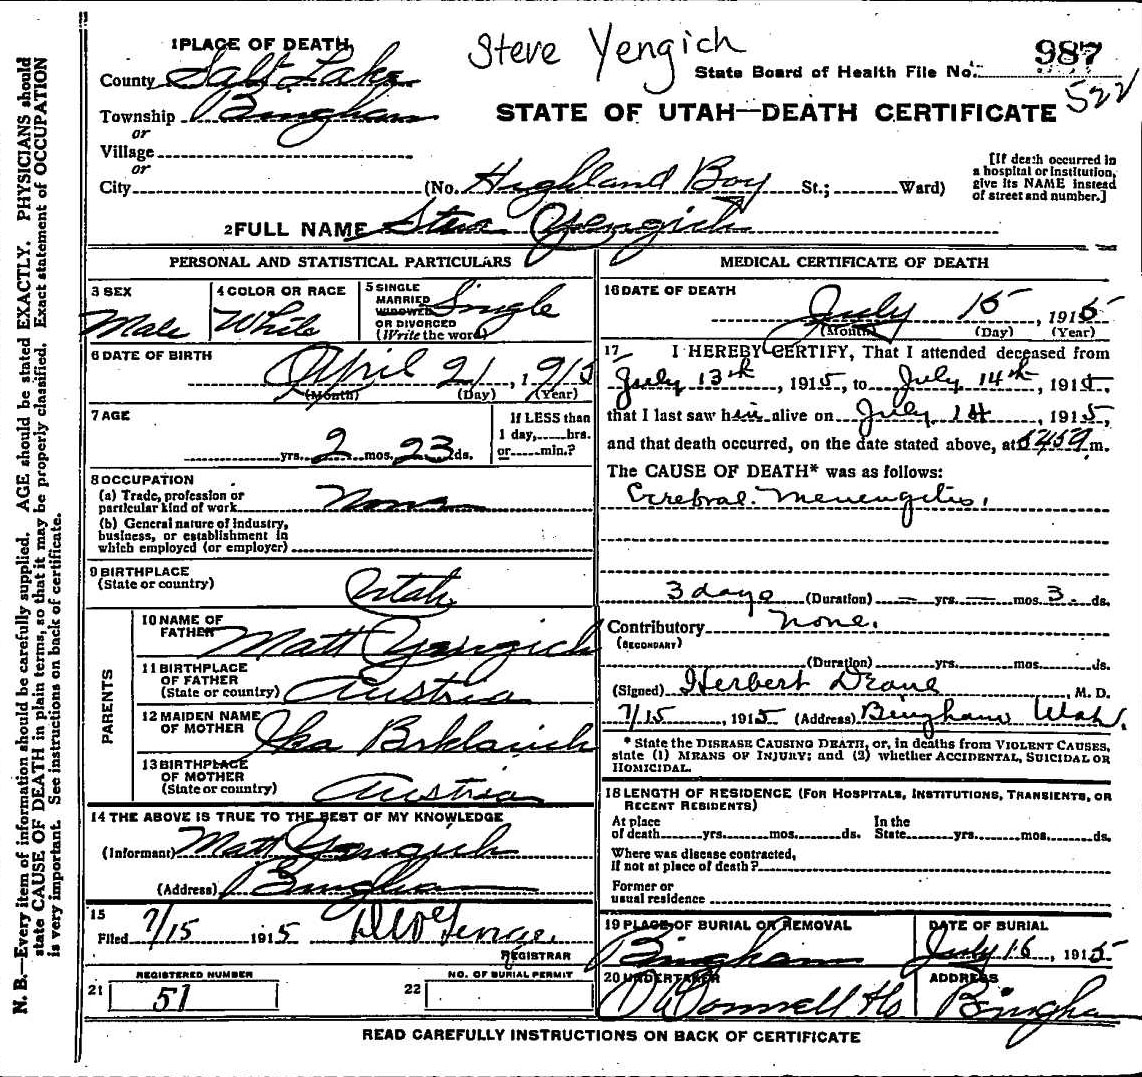 N. B.—Every item of information should be carefully supplied. AGE should be stated EXACTLY. PHYSICIANS should
state CAUSE OF DEATH in plain terms, so that it may be properly classified. Exact statement of OCCUPATION
is very important. See instructions on back of certificate.
Steve Yengich
1 PLACE OF DEATH
County Salt Lake
State Board of Health File No. 987
522
Township Bingham
STATE OF UTAH—DEATH CERTIFICATE
or
Village
or
City (No. Highland Boy St.; Ward)
[If death occurred in
a hospital or institution,
give its NAME instead
of street and number.]
2 FULL NAME Steve Yengich
PERSONAL AND STATISTICAL PARTICULARS
3 SEX
Male
4 COLOR OR RACE
White
5 SINGLE
MARRIED
WIDOWED
OR DIVORCED
(Write the word)
Single
6 DATE OF BIRTH
April 21, 1915
(Month) (Day) (Year)
7 AGE
yrs. 2 mos. 23 ds.
If LESS than
1 day, hrs.
or min.?
8 OCCUPATION
(a) Trade, profession or
particular kind of work None
(b) General nature of industry,
business, or establishment in
which employed (or employer)
9 BIRTHPLACE
(State or country)
Utah
PARENTS
10 NAME OF
FATHER Matt Yengich
11 BIRTHPLACE
OF FATHER
(State or country) Austria
12 MAIDEN NAME
OF MOTHER
13 BIRTHPLACE
OF MOTHER
(State or country) Austria
14 THE ABOVE IS TRUE TO THE BEST OF MY KNOWLEDGE
(Informant) Matt Yengich
(Address) Bingham
15
Filed 7/15 1915
REGISTRAR
REGISTERED NUMBER
21 51
NO. OF BURIAL PERMIT
22
MEDICAL CERTIFICATE OF DEATH
16 DATE OF DEATH
July 15, 1915
(Month) (Day) (Year)
17 I HEREBY CERTIFY, That I attended deceased from
July 13th, 1915, to July 14th, 1915,
that I last saw him alive on July 14, 1915,
and that death occurred, on the date stated above, at m.
The CAUSE OF DEATH* was as follows:
Cerebral Menengitis.
3 days (Duration) — yrs. — mos. 3 ds.
Contributory None.
(SECONDARY)
(Duration) yrs. mos. ds.
(Signed) Herbert Deane M. D.
7/15, 1915 (Address) Bingham Utah.
* State the DISEASE CAUSING DEATH, or, in deaths from VIOLENT CAUSES,
state (1) MEANS OF INJURY; and (2) whether ACCIDENTAL, SUICIDAL OR
HOMICIDAL.
18 LENGTH OF RESIDENCE (FOR HOSPITALS, INSTITUTIONS, TRANSIENTS, OR
RECENT RESIDENTS)
At place
of death yrs. mos. ds.
In the
State yrs. mos. ds.
Where was disease contracted,
if not at place of death?
Former or
usual residence
19 PLACE OF BURIAL OR REMOVAL
Bingham
DATE OF BURIAL
July 16, 1915
20 UNDERTAKER
O'Donnell
ADDRESS
Bingham
READ CAREFULLY INSTRUCTIONS ON BACK OF CERTIFICATE